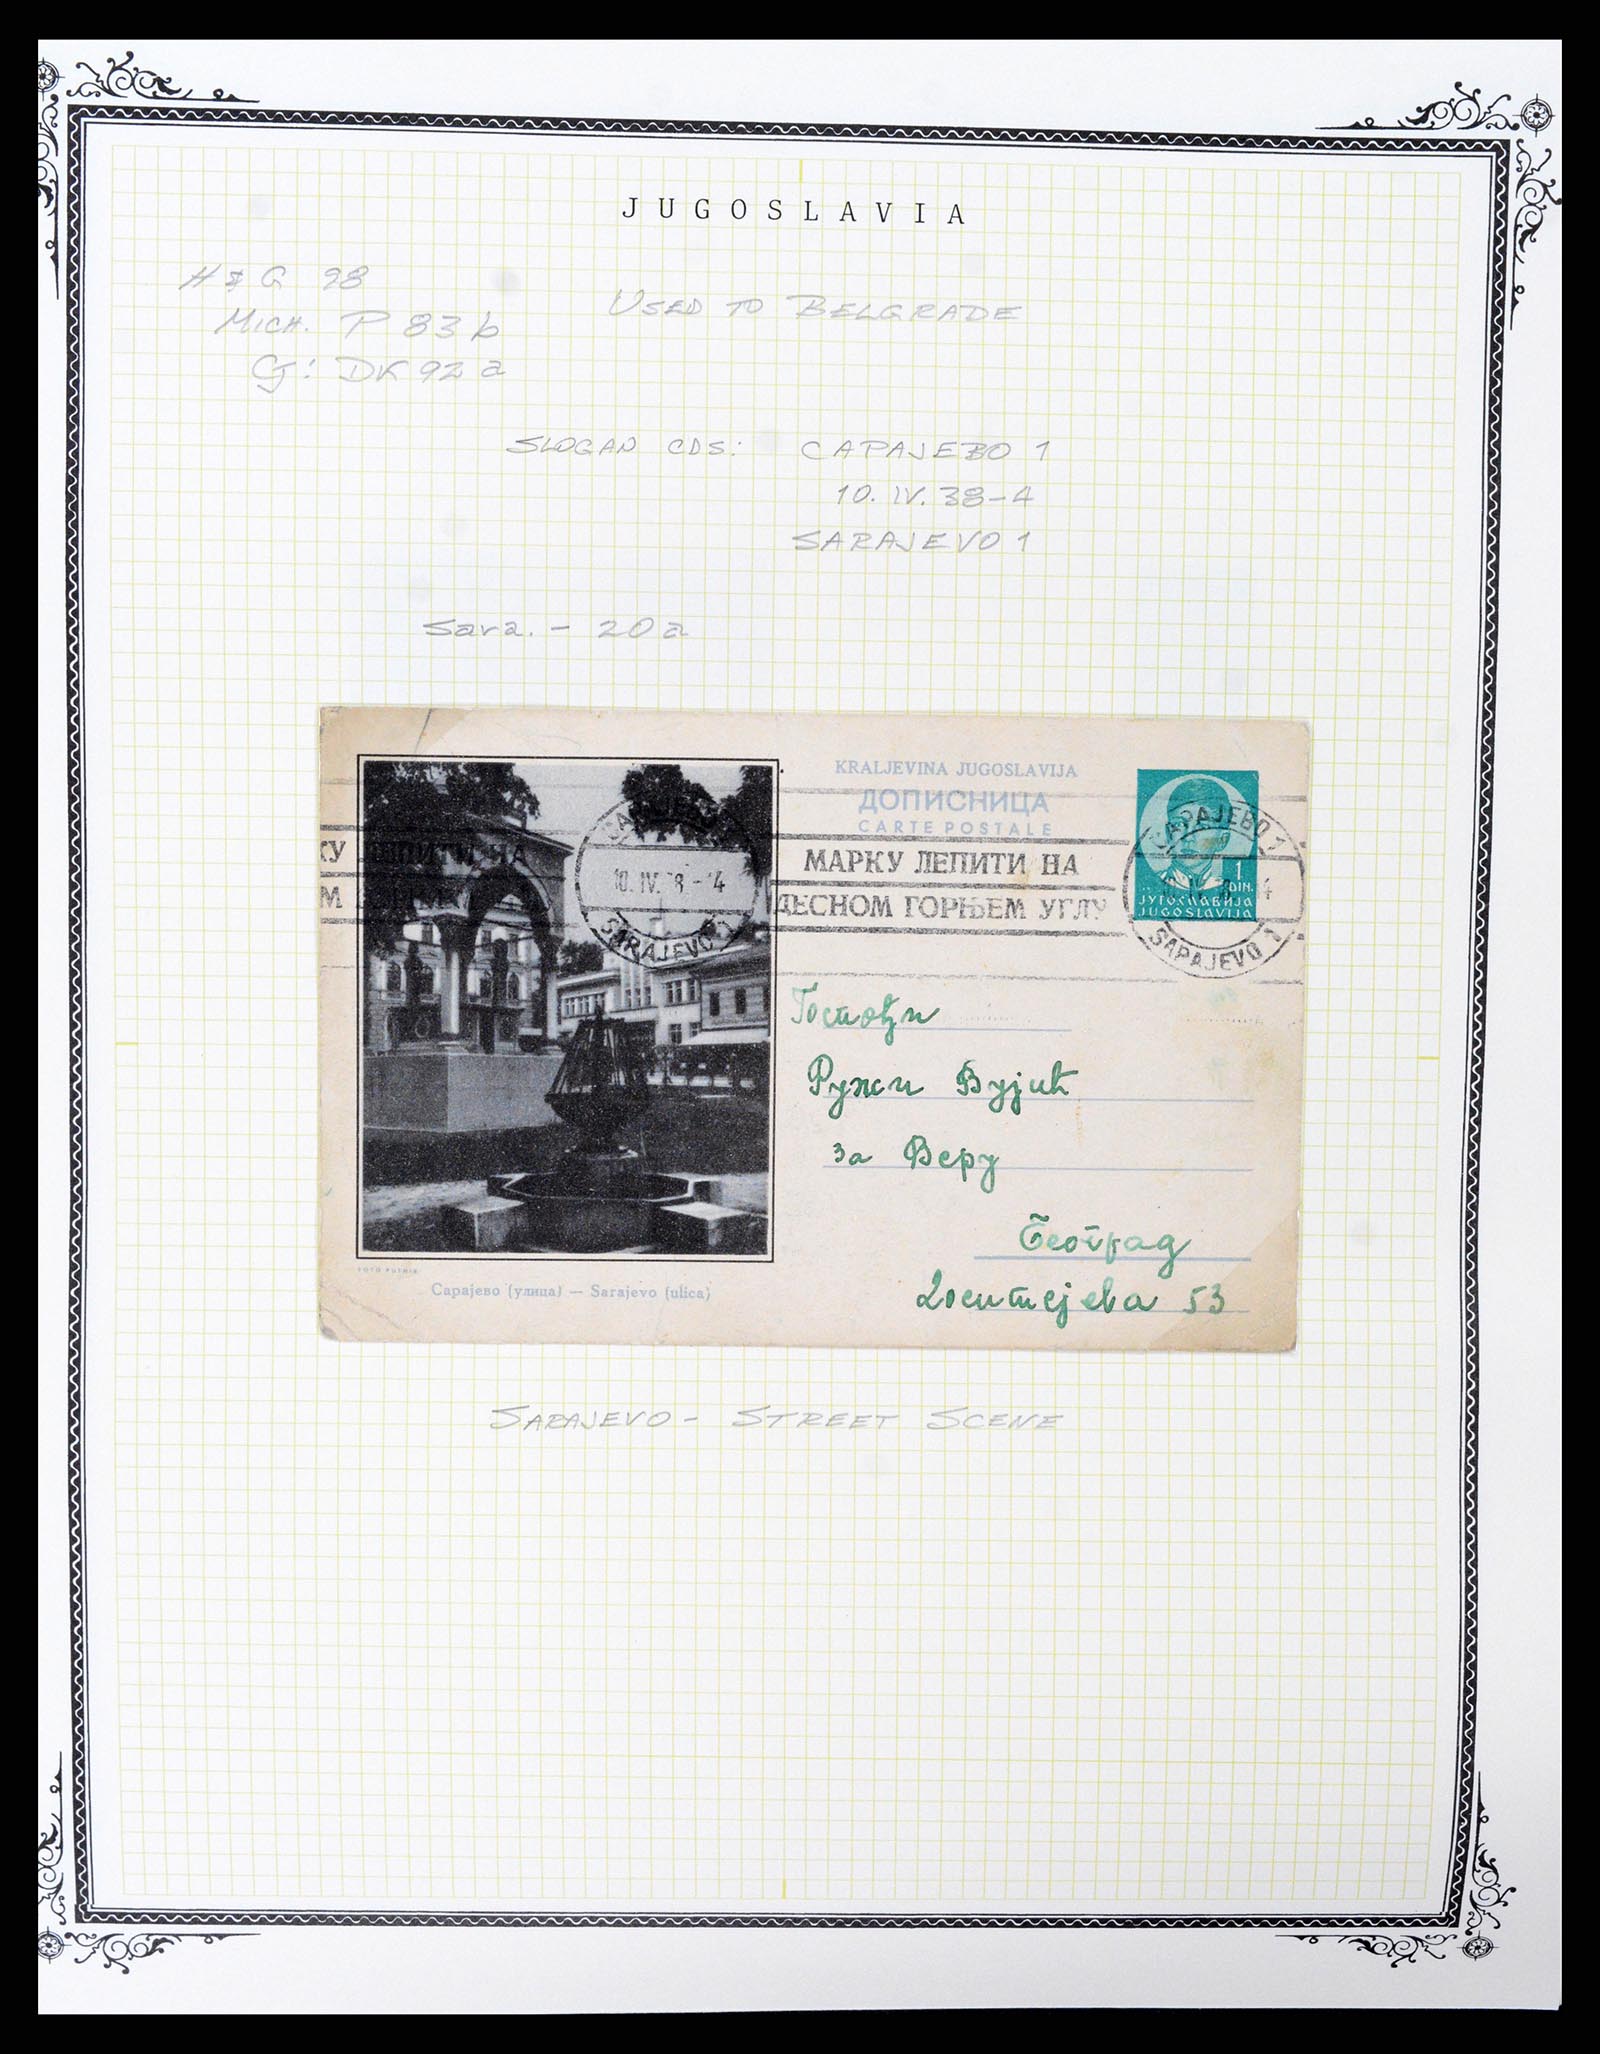 JUGOSLAVIA
H & G 98
MICH. P 83 b
CJ: DK 92 a
USED TO BELGRADE
SLOGAN CDS: САРАЈЕВО 1
10. IV. 38-4
SARAJEVO 1
Sara. - 20a
KRALJEVINA JUGOSLAVIJA
ДОПИСНИЦА
CARTE POSTALE
КУ ЛЕПИТИ НА
10. IV. 38 - 4
SARAJEVO 1
МАРКУ ЛЕПИТИ НА
ДЕСНОМ ГОРЊЕМ УГЛУ
САРАЈЕВО 1
SARAJEVO 1
1 DIN.
ЈУГОСЛАВИЈА
JUGOSLAVIJA
Госпођи
Ружи Вујић
за Веру
Београд
Доситејева 53
FOTO PUTNIK
Сарајево (улица) — Sarajevo (ulica)
SARAJEVO - STREET SCENE